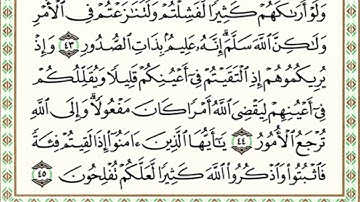 وَلَوْ أَرَىٰكَهُمْ كَثِيرًا لَّفَشِلْتُمْ وَلَتَنَٰزَعْتُمْ فِى ٱلْأَمْرِ
وَلَٰكِنَّ ٱللَّهَ سَلَّمَ ۗ إِنَّهُۥ عَلِيمٌۢ بِذَاتِ ٱلصُّدُورِ ٤٣ وَإِذْ
يُرِيكُمُوهُمْ إِذِ ٱلْتَقَيْتُمْ فِىٓ أَعْيُنِكُمْ قَلِيلًا وَيُقَلِّلُكُمْ
فِىٓ أَعْيُنِهِمْ لِيَقْضِىَ ٱللَّهُ أَمْرًا كَانَ مَفْعُولًا ۗ وَإِلَى ٱللَّهِ
تُرْجَعُ ٱلْأُمُورُ ٤٤ يَٰٓأَيُّهَا ٱلَّذِينَ ءَامَنُوٓا۟ إِذَا لَقِيتُمْ فِئَةً
فَٱثْبُتُوا۟ وَٱذْكُرُوا۟ ٱللَّهَ كَثِيرًا لَّعَلَّكُمْ تُفْلِحُونَ ٤٥